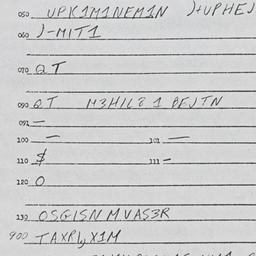 050 UPK1M1NEM1N )+UPHEJ
060 )-MIT1
070 QT
090 QT M3HIL8 1 BEJTN
091 —
100 — 101 —
110 $ 111 –
120 O
130 OSGISNMVAS3R
900 TAXRlyX1M